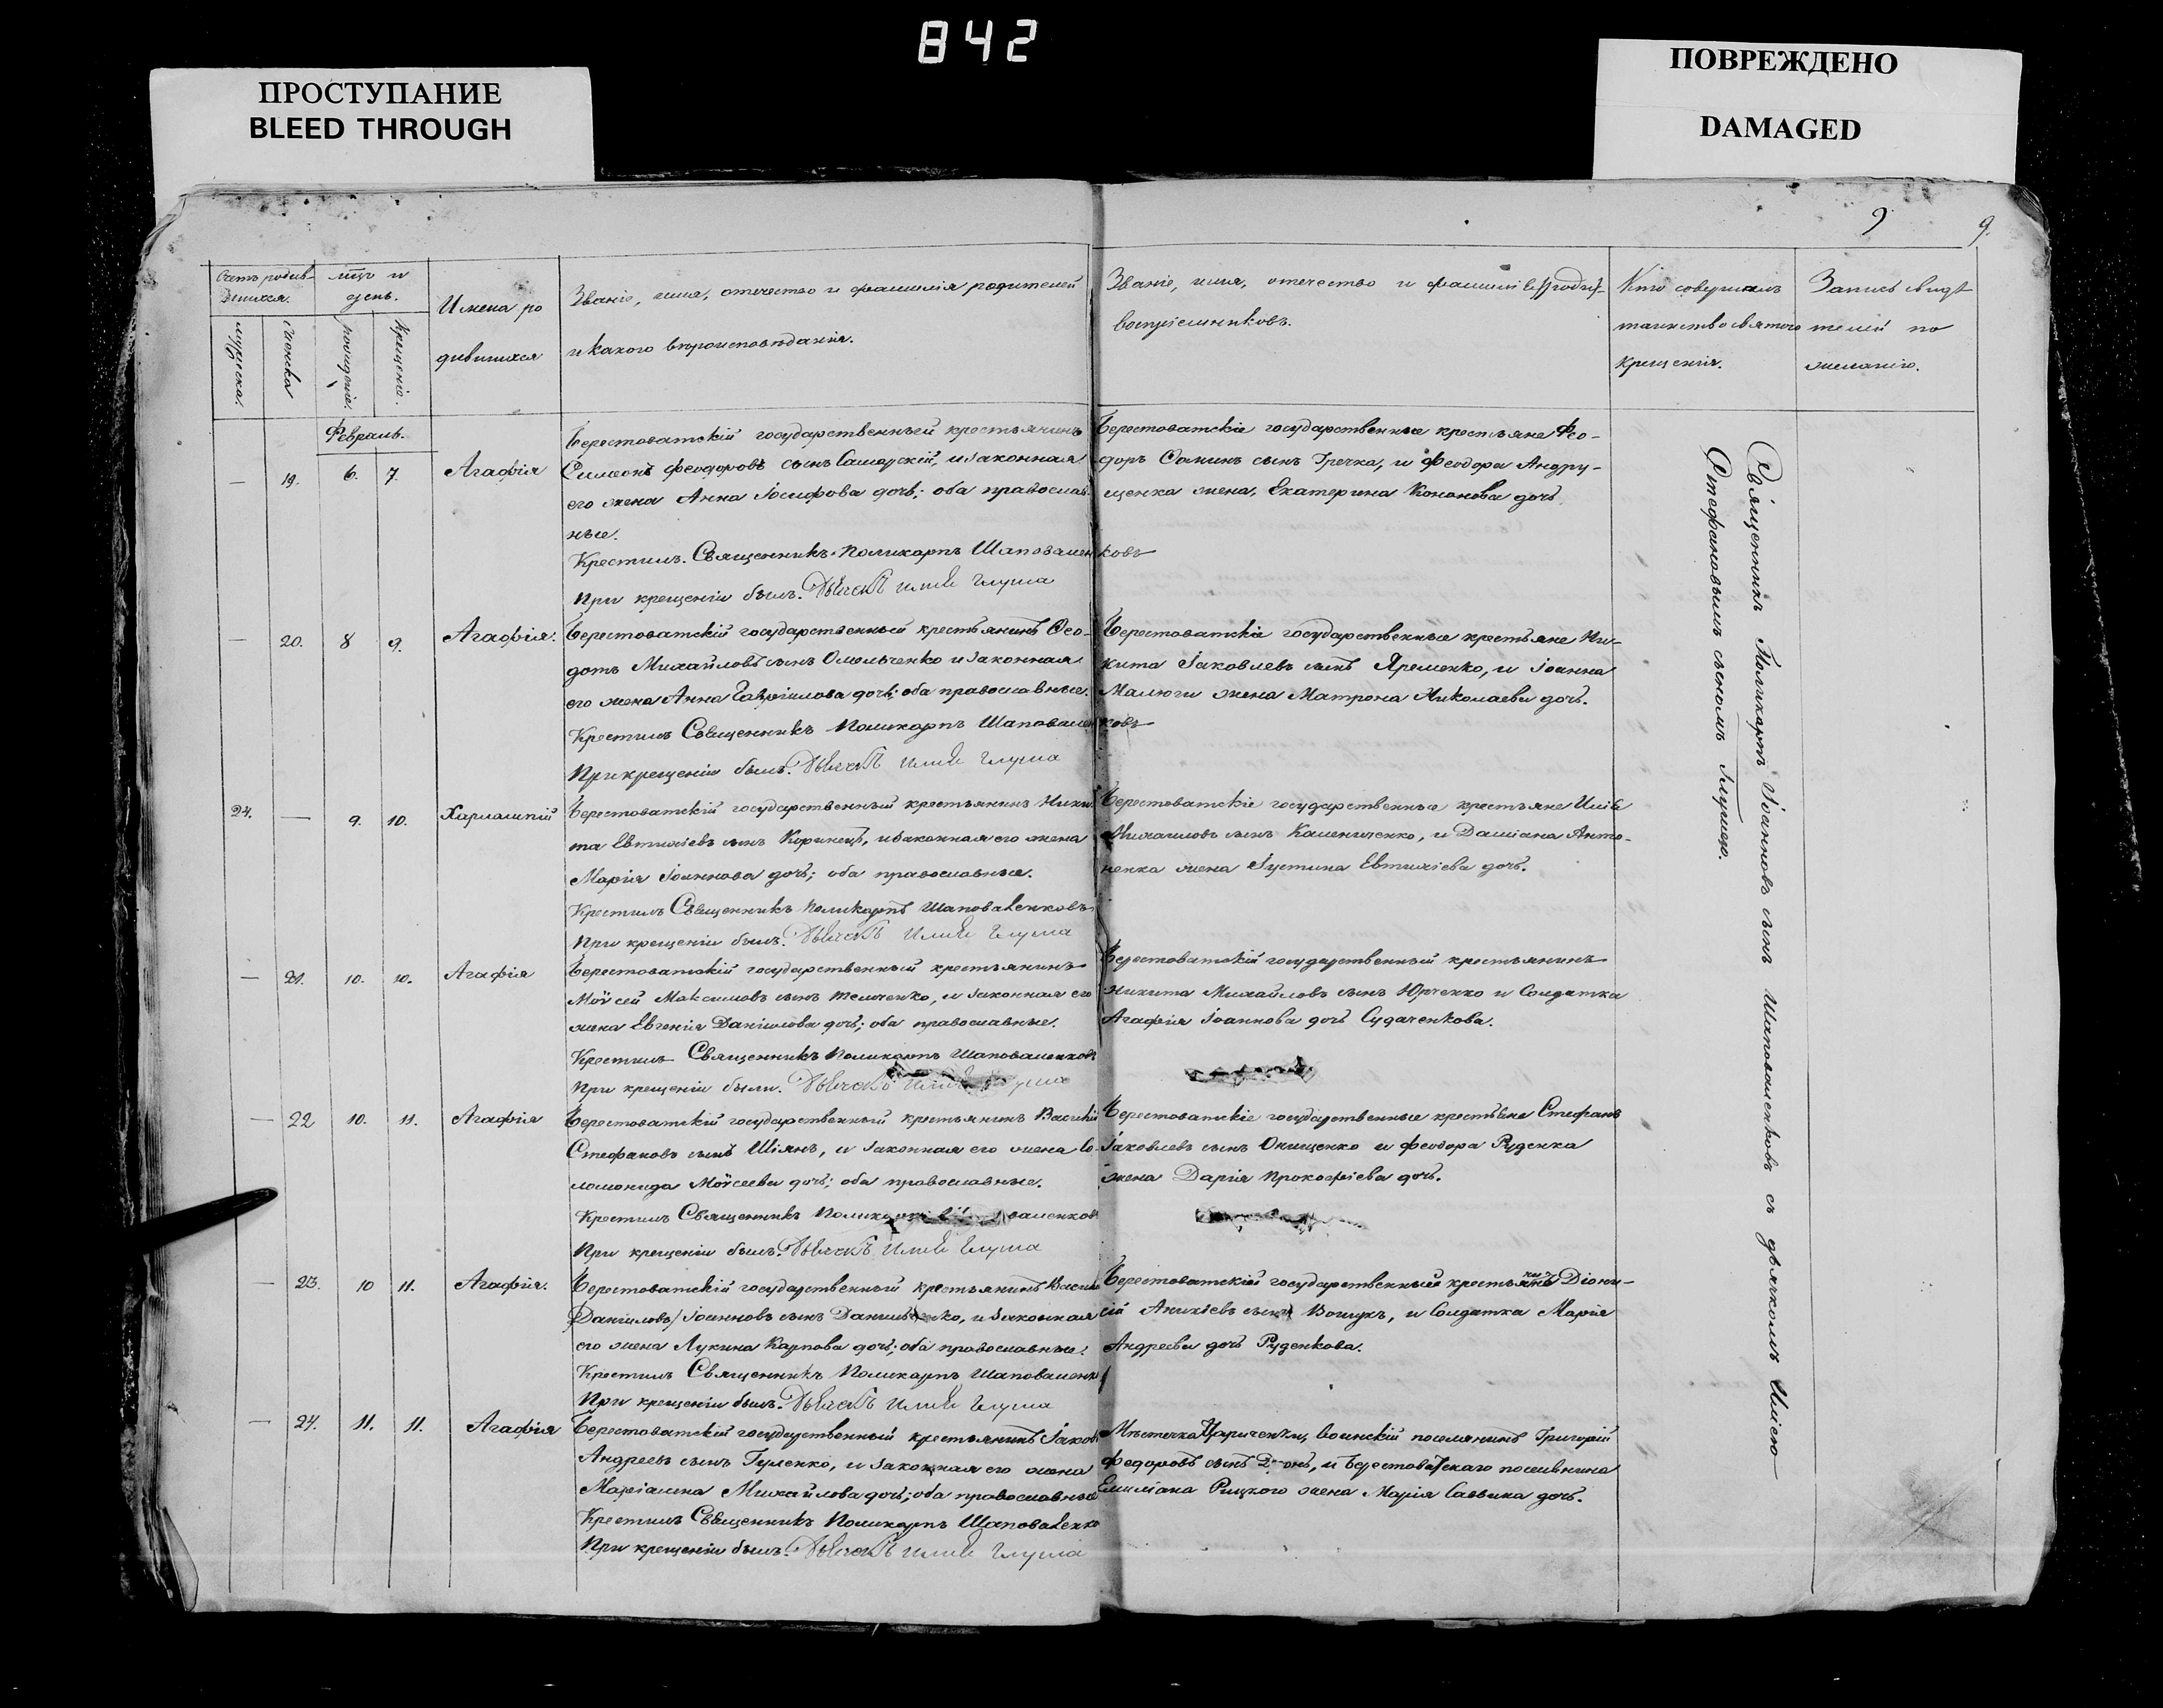 842
ПРОСТУПАНИЕ
BLEED THROUGH
ПОВРЕЖДЕНО
DAMAGED
9 9.
Счетъ родив-
шихся.
мужеска.
женска
мѣц и
день.
рожденія.
крещенія.
Имена ро
дившихся
Званіе, имя, отчество и фамилія родителей
и какого вѣроисповѣданія.
Званіе, имя, отчество и фамилія
воспріемниковъ.
Кто совершалъ
таинство святаго
крещенія.
Запись свидѣ
телей по
желанію.
Февраль.
— 19. 6. 7. Агафія
Берестоватскій государственный крестьянинъ
Симеонъ Феодоровъ сынъ Самарскій, и законная
его жена Анна Іосифова дочь; оба православ
ные.
Крестилъ. Священникъ Поликарпъ Шаповаленковъ
При крещеніи былъ. Дьячокъ Илія Глуша
Берестоватскіе государственные крестьяне Фео-
доръ Сонинъ сынъ Гречка, и Феодора Андру-
щенка жена, Екатерина Кононова дочь
— 20. 8 9. Агафія.
Берестоватскій государственный крестьянинъ Фео-
дотъ Михайловъ сынъ Омельченко и законная
его жена Анна Гавріилова дочь; оба православные.
Крестилъ Священникъ Поликарпъ Шаповаленковъ
При крещеніи былъ. Дьячокъ Илія Глуша
Берестоватскіе государственные крестьяне Ни-
кита Іаковлевъ сынъ Яременко, и Іоанна
Малюги жена Матрона Николаева дочь.
24. — 9. 10. Харлампій
Берестоватскій государственный крестьянинъ Ники
та Евтихіевъ сынъ Коринецъ, и законная его жена
Марія Іоаннова дочь; оба православные.
Крестилъ Священникъ Поликарпъ Шаповаленковъ
При крещеніи былъ. Дьячокъ Илія Глуша
Берестоватскіе государственные крестьяне Илія
Михаиловъ сынъ Калениченко, и Даміана Анто-
ненка жена Іустина Евтихіева дочь.
— 21. 10. 10. Агафія
Берестоватскій государственный крестьянинъ
Моѵсей Максимовъ сынъ Темченко, и законная его
жена Евгенія Даніилова дочь; оба православные.
Крестилъ Священникъ Поликарпъ Шаповаленковъ
При крещеніи были. Дьячокъ Илія Глуша
Берестоватскій государственный крестьянинъ
Никита Михайловъ сынъ Юрченко и Солдатка
Агафія Іоаннова дочь Судаченкова.
— 22 10. 11. Агафія
Берестоватскій государственный крестьянинъ Василій
Стефановъ сынъ Шіянъ, и законная его жена Со-
ломонида Моѵсеева дочь; оба православные.
Крестилъ Священникъ
При крещеніи былъ. Дьячокъ Илія Глуша
Берестоватскіе государственные крестьяне Стефанъ
Іаковлевъ сынъ Онищенко и Феодора Руденка
жена Дарія Прокофіева дочь.
— 23. 10 11. Агафія.
Берестоватскій государственный крестьянинъ
Даніиловъ/Іоанновъ сынъ и законная
его жена Лукина Карпова дочь; оба православные.
Крестилъ Священникъ Поликарпъ Шаповаленк
При крещеніи былъ. Дьячокъ Илія Глуша
Берестоватскій государственный крестьянинъ Діони-
сій Аникіевъ сынъ и Солдатка Марія
Андреева дочь Руденкова.
— 24. 11. 11. Агафія
Берестоватскій государственный крестьянинъ Іаковъ
Андреевъ сынъ Гуленко, и законная его жена
Маріамна Михайлова дочь; оба православные
Крестилъ Священникъ Поликарпъ Шаповаленко
При крещеніи былъ. Дьячокъ Илія Глуша
Мѣстечка Царичанки, воинскій поселянинъ Григорій
Федоровъ сынъ и Берестоватскаго поселянина
Емиліана Рицкого жена Марія Саввина дочь.
Священникъ Поликарпъ Іоанновъ сынъ Шаповаленковъ съ дьячкомъ Иліею
Стефановымъ сыномъ Глушею.